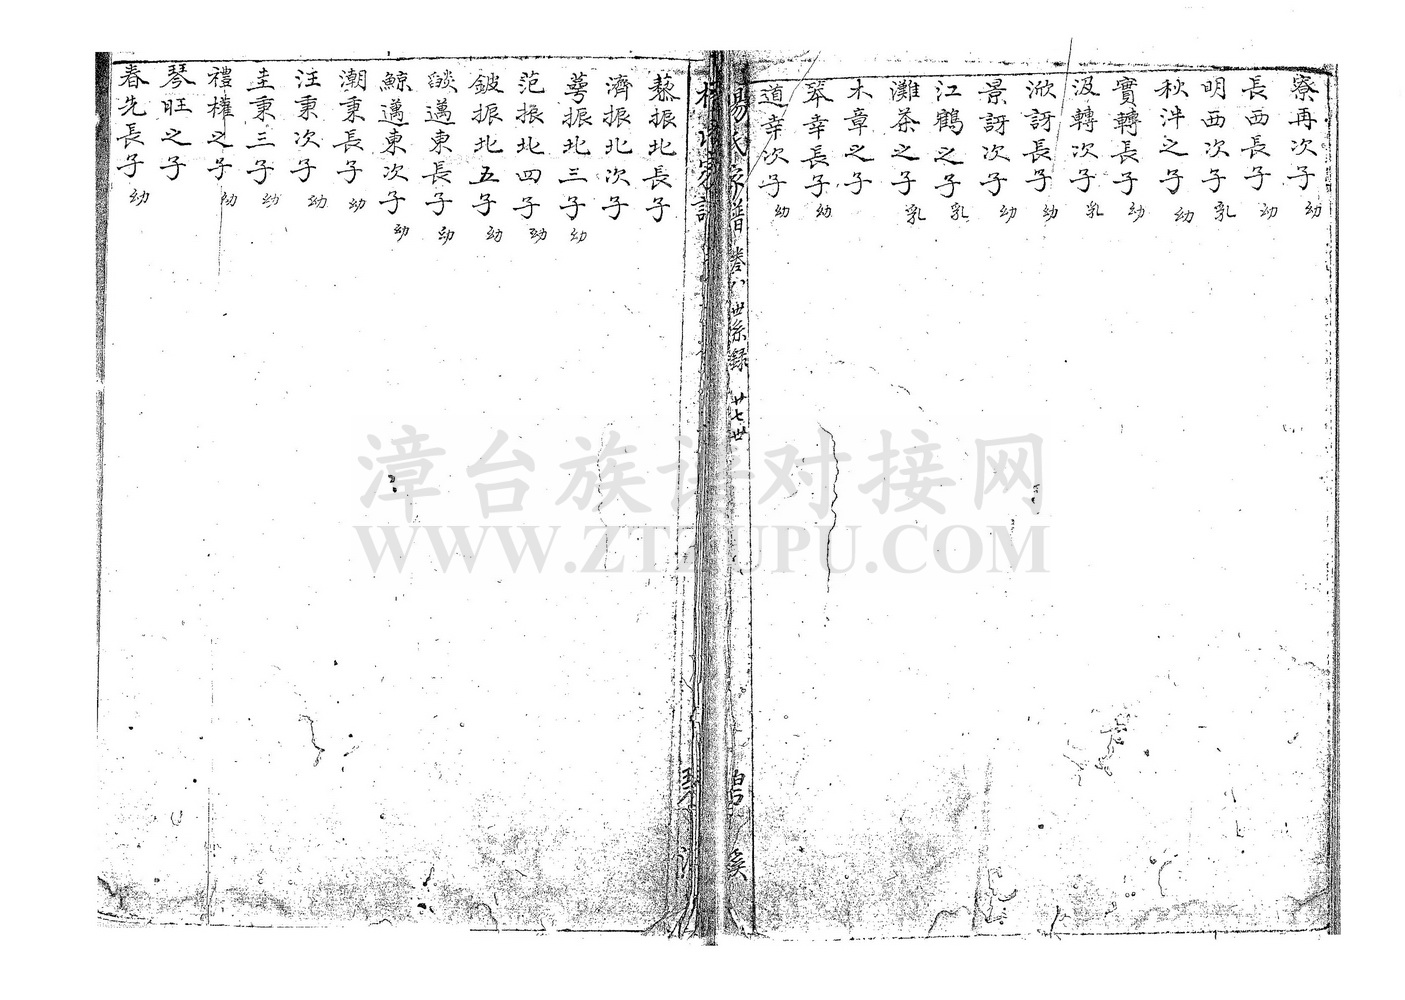 寮再次子 幼
長西長子 幼
明西次子 乳
秋泮之子 幼
實轉長子 幼
汲轉次子 乳
淤訝長子 幼
景訝次子 幼
江鶴之子 乳
灘茶之子 乳
木章之子
萃幸長子 幼
道幸次子 幼
楊氏家譜 卷八 世系錄 廿七世 碧溪
藜振北長子
濟振北次子
萼振北三子 幼
范振北四子 幼
鈹振北五子 幼
邁東長子 幼
鯨邁東次子 幼
潮秉長子 幼
汪秉次子 幼
圭秉三子 幼
禮權之子 幼
琴旺之子
春先長子 幼
漳台族谱对接网
WWW.ZTZUPU.COM